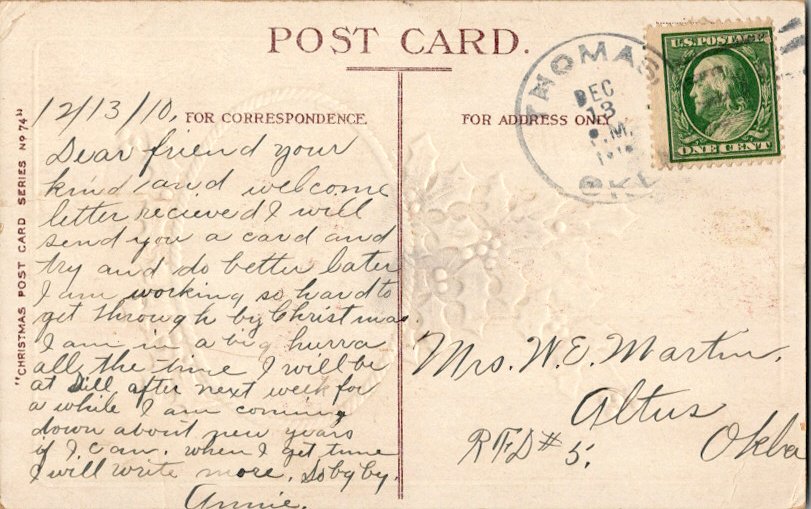 POST CARD.
THOMAS
DEC
13
P.M.
OKLA
U.S. POSTAGE
ONE CENT
"CHRISTMAS POST CARD SERIES No 74"
FOR CORRESPONDENCE.
FOR ADDRESS ONLY
12/13/10,
Dear friend your
kind and welcome
letter recieved I will
send you a card and
try and do better later
I am working so hard to
get through by Christmas
I am in a big hurra
all the time I will be
at Dill after next week for
a while I am coming
down about new years
if I can. when I get time
I will write more. So by by.
Annie.
Mrs. W. E. Martin,
Altus
Okla
RFD # 5.